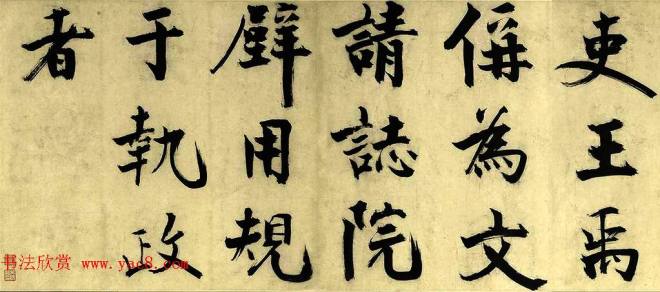 吏王禹
偁為文
請誌院
壁用規
于執政
者
书法欣赏 www.yac8.com